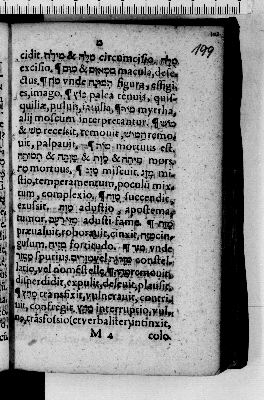 199
מ
cidit. מלה & מילה circumcisio,
excisio, ¶ מום & מאום macula, defe
ctus. ¶ מין vnde תמונה figura, effigi
es, imago, ¶ מוץ palea tenuis, quis=
quiliæ, puluis, fauilla, ¶ מור myrrha,
alij moscum interpretantur. ¶ מוש
& מיש recessit, remouit,
uit, palpauit, ¶ מות mortuus est,
mors,
מת mortuus, ¶ מזג miscuit, מזג mi
stio, temperamentum, poculū mix
tum, complexio, ¶ מזה succendit,
exussit, מזה adustio, apostema,
tumor, adusti fame, ¶
præualuit, roborauit, cinxit, מזח cin
gulum, מזיח fortitudo. ¶ מזר vnde
ממזר spurius, מזרים vel מזלות constel=
latio, vel nomē stellę, ¶ מחה remouit,
disperdidit, expulit, deleuit, plausit,
¶ מחץ transfixit, vulnerauit, contri
uit, confregit, vnde interruptio, vul
nꝰ, trāsfossio (et verbaliter) intinxit,
M 4 colo.